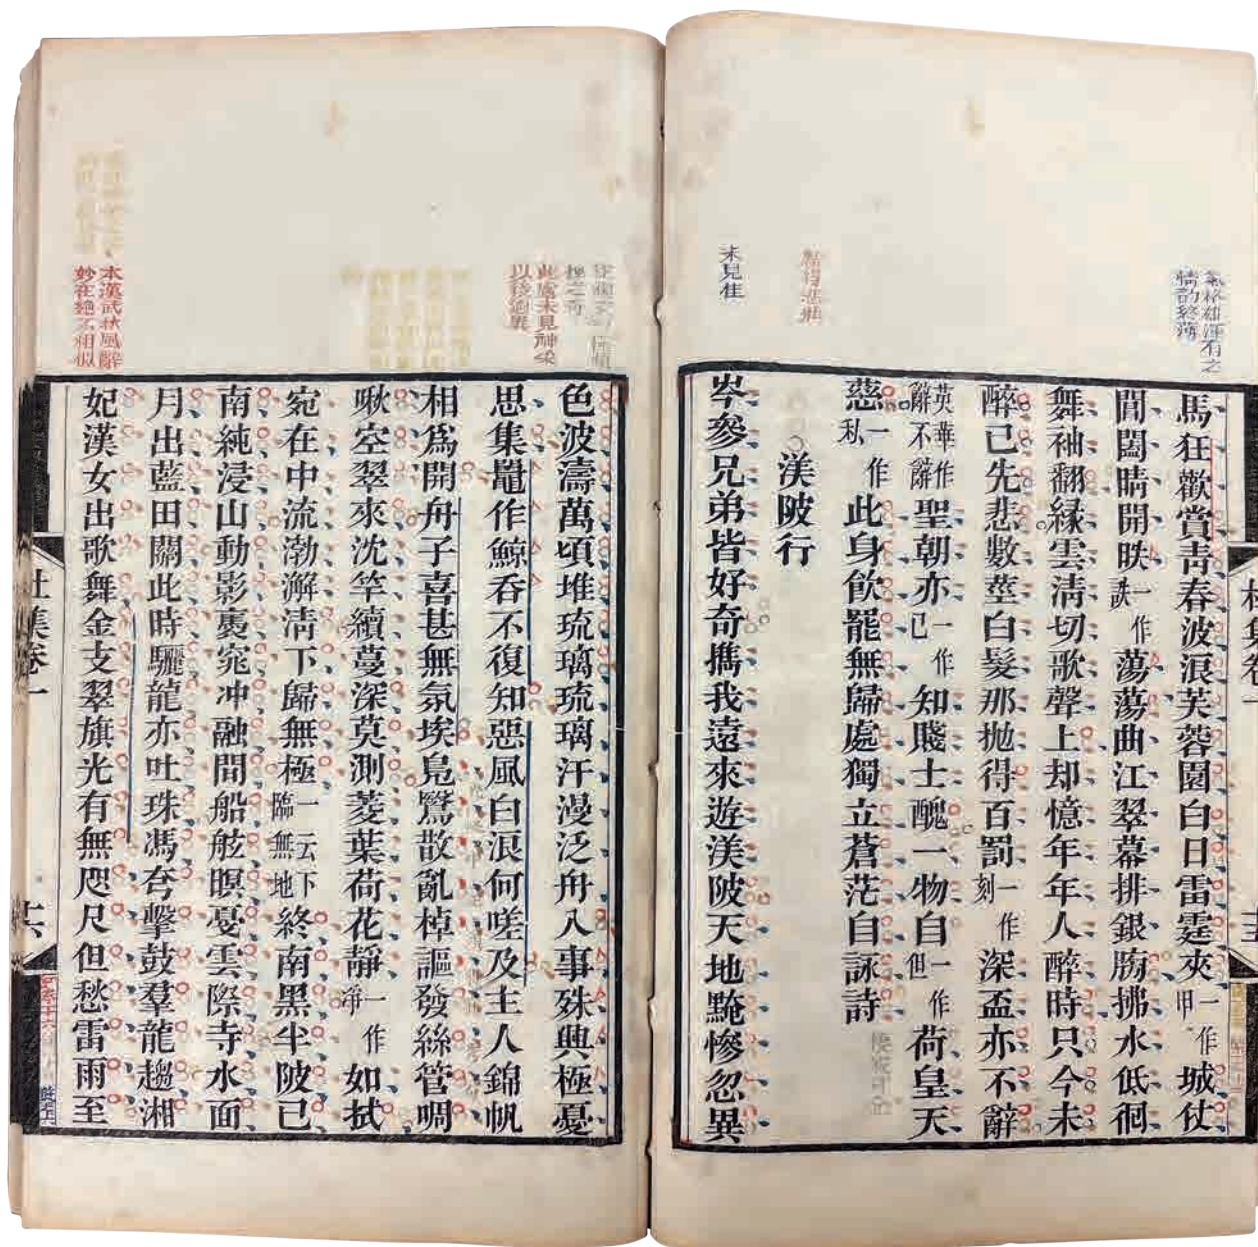 馬狂歡賞靑春波浪芙蓉園白日雷霆夾一作甲城仗
閶闔晴開昳一作詄蕩蕩曲江翠幕排銀牓拂水低徊
舞袖翻緣雲淸切歌聲上却憶年年人醉時只今未
醉已先悲數莖白髮那拋得百罰一作刻深盃亦不辭
英華作辭不辭聖朝亦一作已知賤士醜一物自一作但荷皇天
慈一作私此身飮罷無歸處獨立蒼茫自詠詩
渼陂行
岑參兄弟皆好奇攜我遠來遊渼陂天地黤慘忽異
氣格雄渾有之
情韵終薄
未見佳
色波濤萬頃堆琉璃琉璃汗漫泛舟入事殊興極憂
思集鼉作鯨呑不復知惡風白浪何嗟及主人錦帆
相爲開舟子喜甚無氛埃鳧鷖散亂棹謳發絲管啁
啾空翠來沈竿續蔓深莫測菱葉荷花靜一作淨如拭
宛在中流渤澥淸下歸無極一云下臨無地終南黑半陂已
南純浸山動影裏窕冲融間船舷暝戞雲際寺水面
月出藍田關此時驪龍亦吐珠馮夸擊鼓羣龍趨湘
妃漢女出歌舞金支翠旗光有無咫尺但愁雷雨至
此處未見神采
以後絕異
本漢武秋風辭
妙在絕不相似
杜集卷一